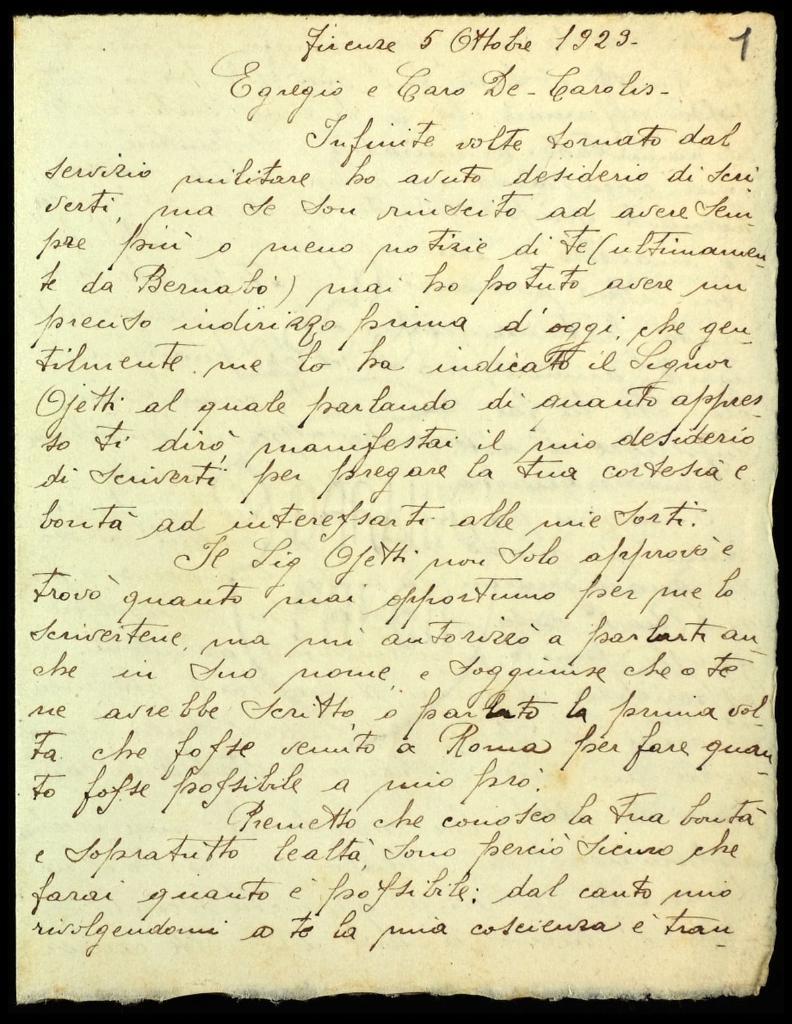 Firenze 5 Ottobre 1929-
1
Egregio e Caro De-Carolis-
Infinite volte tornato dal
servizio militare ho avuto desiderio di scri
verti, ma se son riuscito ad avere sem-
pre più o meno notizie di te (ultimamen-
te da Bernabò) mai ho potuto avere un
preciso indirizzo prima d'oggi, che gen-
tilmente me lo ha indicato il Signor
Ojetti al quale parlando di quanto appres-
so ti dirò, manifestai il mio desiderio
di scriverti per pregare la tua cortesia e
bontà ad interessarti alle mie sorti.
Il Sig Ojetti non solo approvò e
trovò quanto mai opportuno per me lo
scrivertene, ma mi autorizzò a parlarti an-
che in suo nome, e soggiunse che a te
ne avrebbe scritto, o parlato la prima vol-
ta che fosse venuto a Roma per fare quan-
to fosse possibile a mio pro.
Premetto che conosco la tua bontà
e sopratutto lealtà, sono perciò sicuro che
farai quanto è possibile; dal canto mio
rivolgendomi a te la mia coscienza è tran-